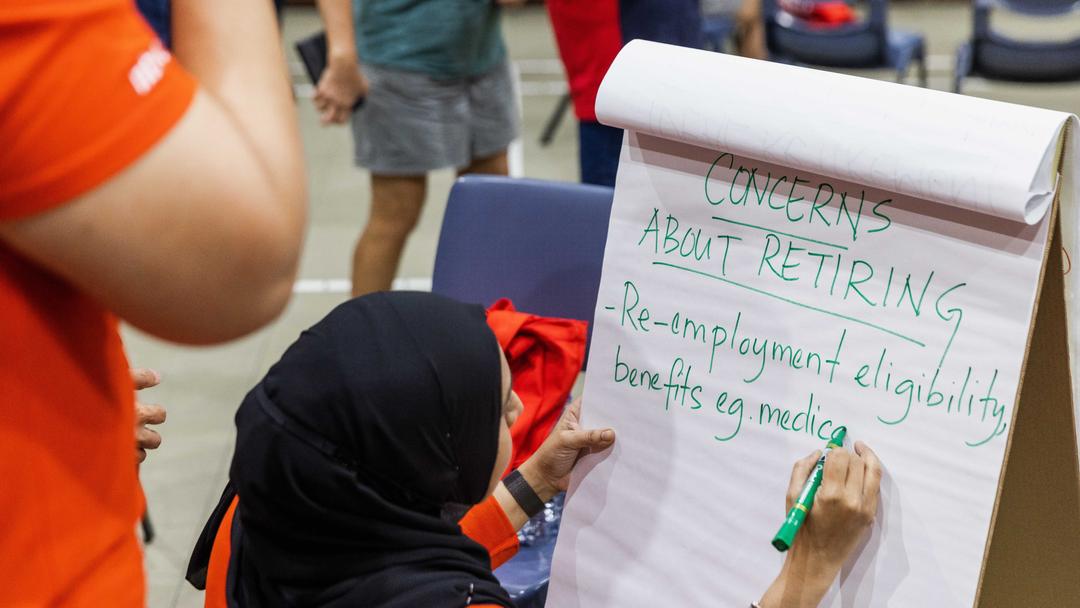 CONCERNS
ABOUT RETIRING
-Re-employment eligibility,
benefits eg. medica